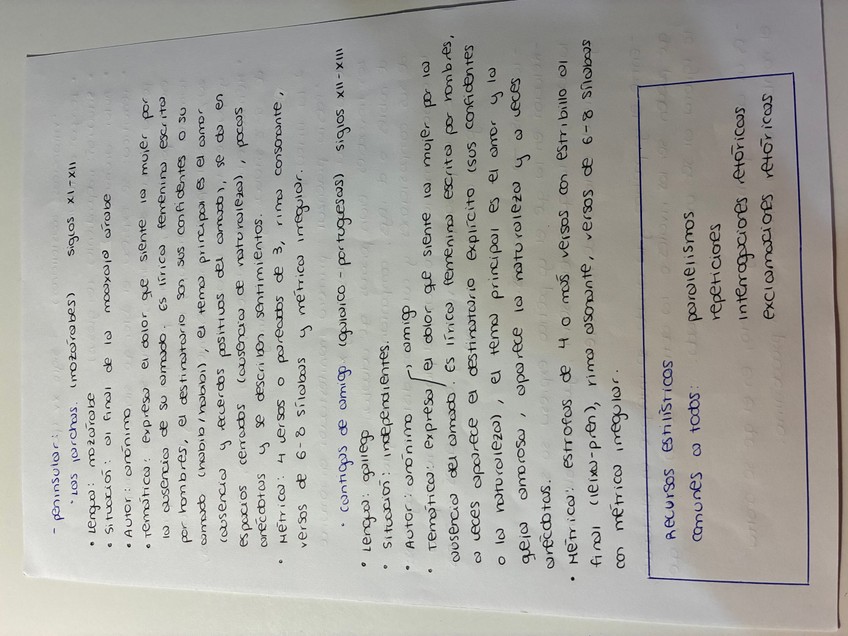 - peninsular:
• Las jarchas. (mozárabes) siglos XI-XII
• Lengua: mozárabe
• Situación: al final de la moaxaja árabe
• Autor: anónimo
• Temática: expresa el dolor que siente la mujer por
la ausencia de su amado. Es lírica femenina escrita
por hombres, el destinatario son sus confidentes o su
amado (habib/habibi), el tema principal es el amor
(ausencia y recuerdos positivos del amado), se da en
espacios cerrados (ausencia de naturaleza), pocas
anécdotas y se describen sentimientos.
• Métrica: 4 versos o pareados de 3, rima consonante,
versos de 6-8 sílabas y métrica irregular.
• Cantigas de amigo. (galaico-portuguesas) siglos XII-XIII
• Lengua: gallego
• Situación: independientes.
• Autor: anónimo, amigo
• Temática: expresa el dolor que siente la mujer por la
ausencia del amado. Es lírica femenina escrita por hombres,
a veces aparece el destinatario explícito (sus confidentes
o la naturaleza), el tema principal es el amor y la
queja amorosa, aparece la naturaleza y a veces
anécdotas.
• Métrica: estrofas de 4 o más versos con estribillo al
final (leixa-prén), rima asonante, versos de 6-8 sílabas
con métrica irregular.
RECURSOS ESTILÍSTICOS
comunes a todos:
paralelismos
repeticiones
interrogaciones retóricas
exclamaciones retóricas